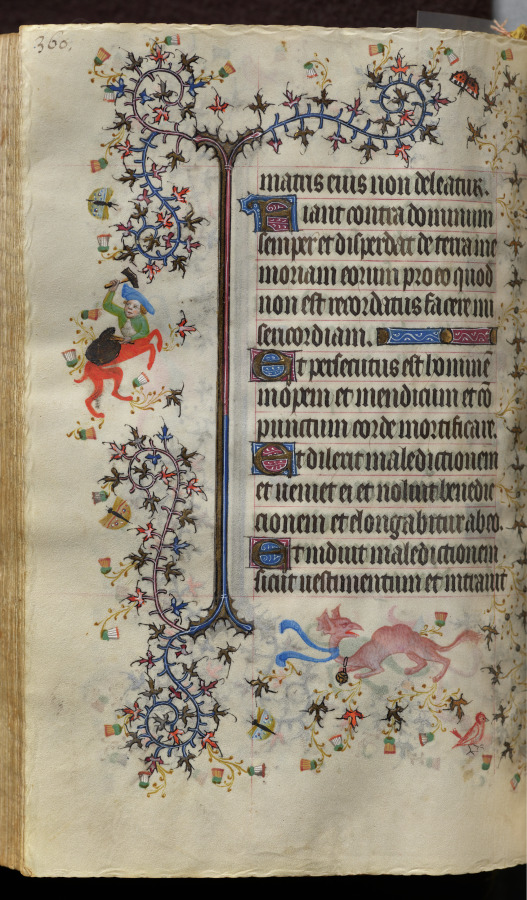 366.
matris eius non deleatur.
Fiant contra dominum
semper et disperdat de terra me
moriam eorum pro eo quod
non est recordatus facere mi
sericordiam.
Et persecutus est hominē
inopem et mendicum et cō
punctum corde mortificare.
Et dilexit maledictionem
et ueniet ei et noluit benedic
tionem et elongabitur ab eo.
Et induit maledictionem
sicut uestimentum et intrauit